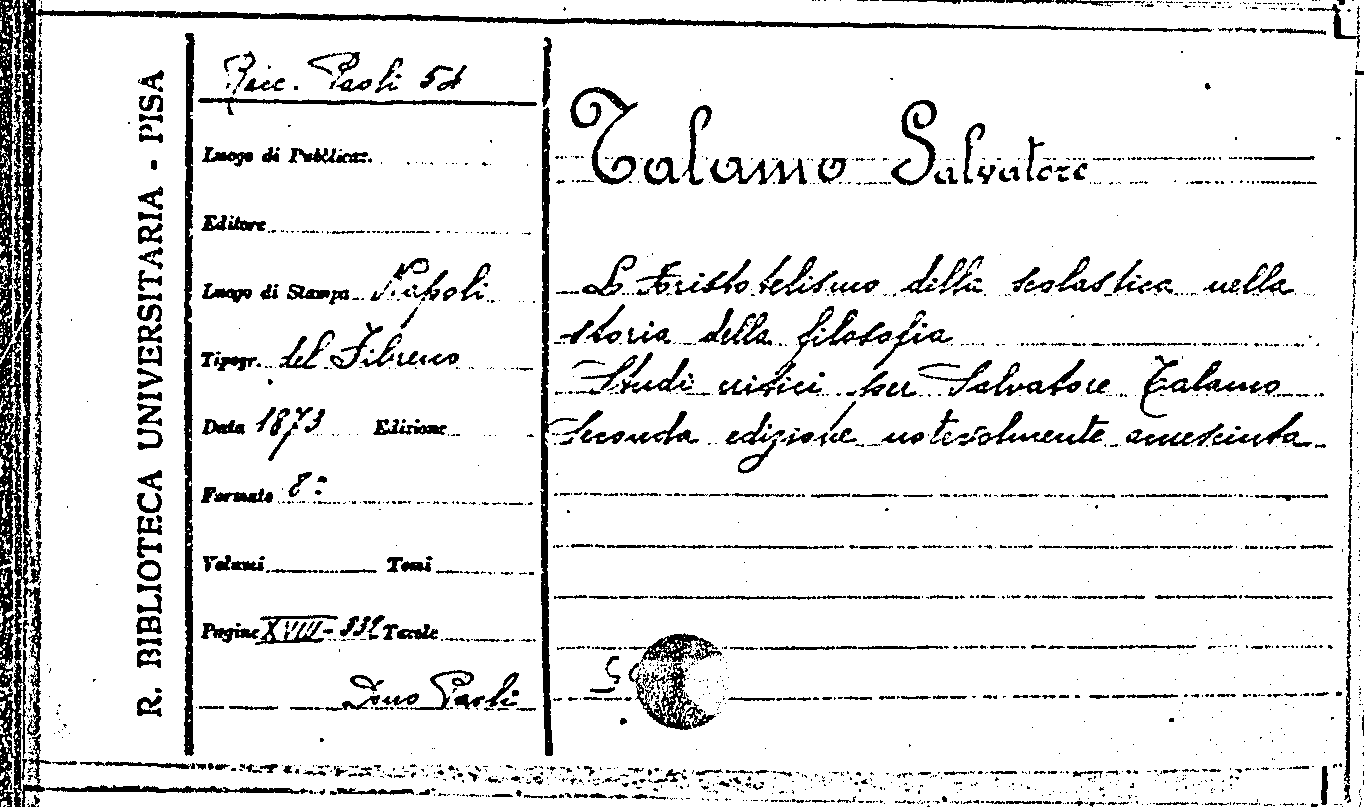 R. BIBLIOTECA UNIVERSITARIA - PISA
Racc. Paoli 5d
Luogo di Pubblicaz.
Editore
Luogo di Stampa Napoli
Tipogr. del Fibreno
Data 1873 Edizione
Formato 8º
Volumi Tomi
Pagine XVIII- Tavole
Dono Paoli
Talamo Salvatore
L'Aristotelismo della scolastica nella
storia della filosofia
Studi critici per Salvatore Talamo
Seconda edizione notevolmente accresciuta